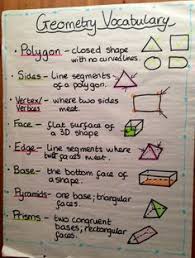 Geometry Vocabulary
• Polygon - closed shape
with no curved lines.
• Sides - Line segments
of a polygon.
• Vertex/
Vertices - where two sides
meet.
• Face - flat surface of
a 3D shape
• Edge - Line segments where
two faces meet.
• Base - the bottom face of
a shape.
• Pyramids - one base; triangular
faces.
• Prisms - two congruent
bases; rectangular
faces.